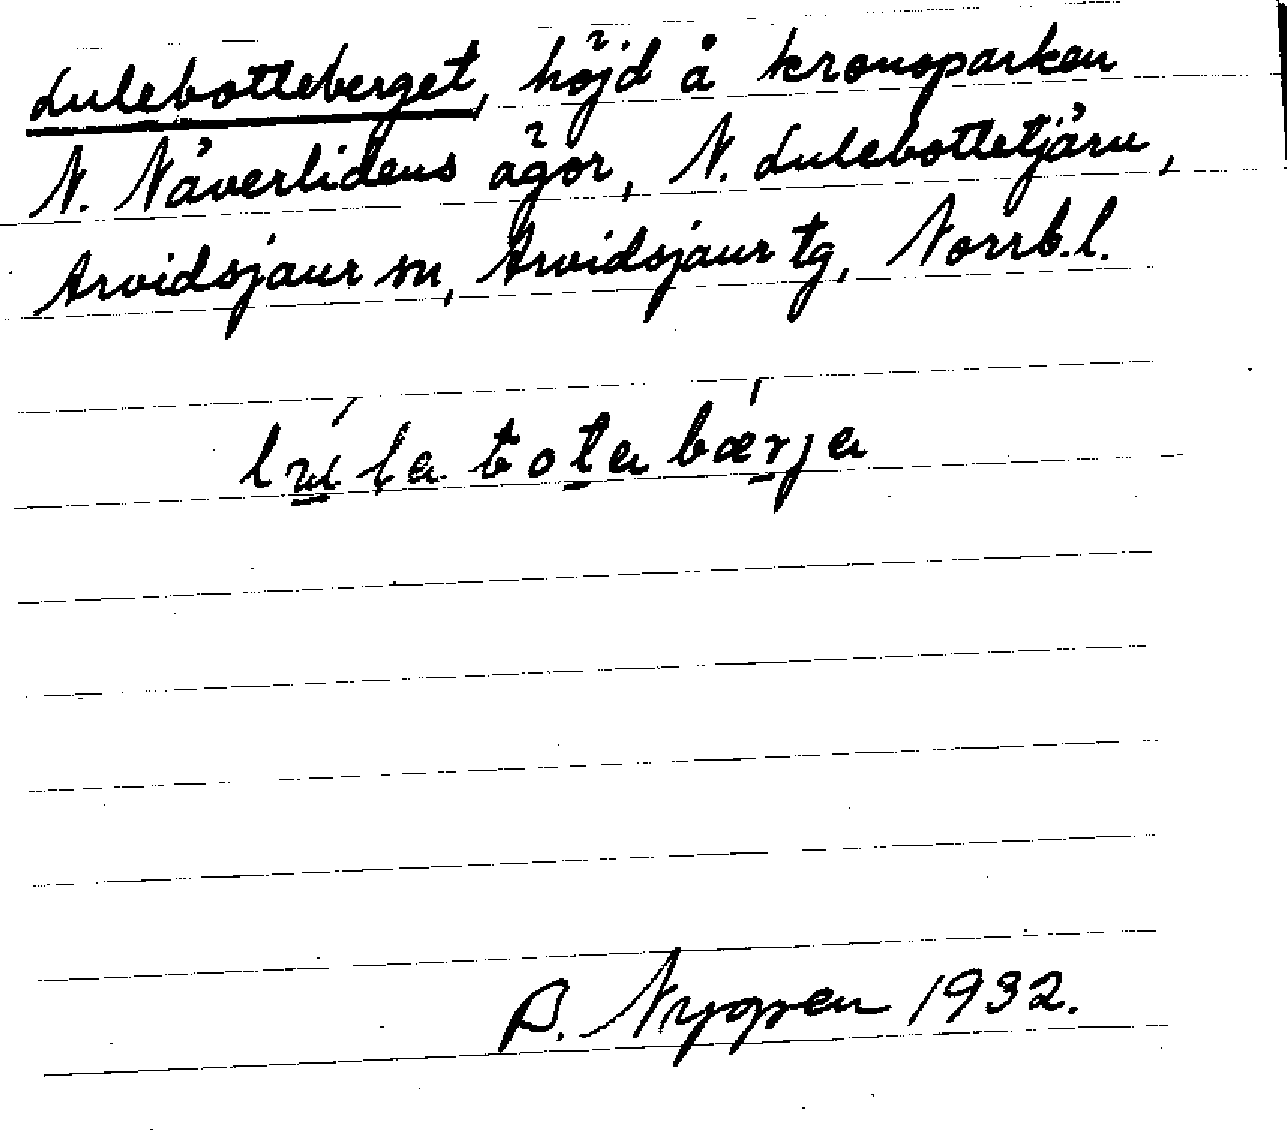 Lulebotteberget, höjd å kronoparken
N. Näverlidens ägor, N. Lulebottetjärn,
Arvidsjaur sn, Arvidsjaur tg, Norrb.l.
B. Nygren 1932.